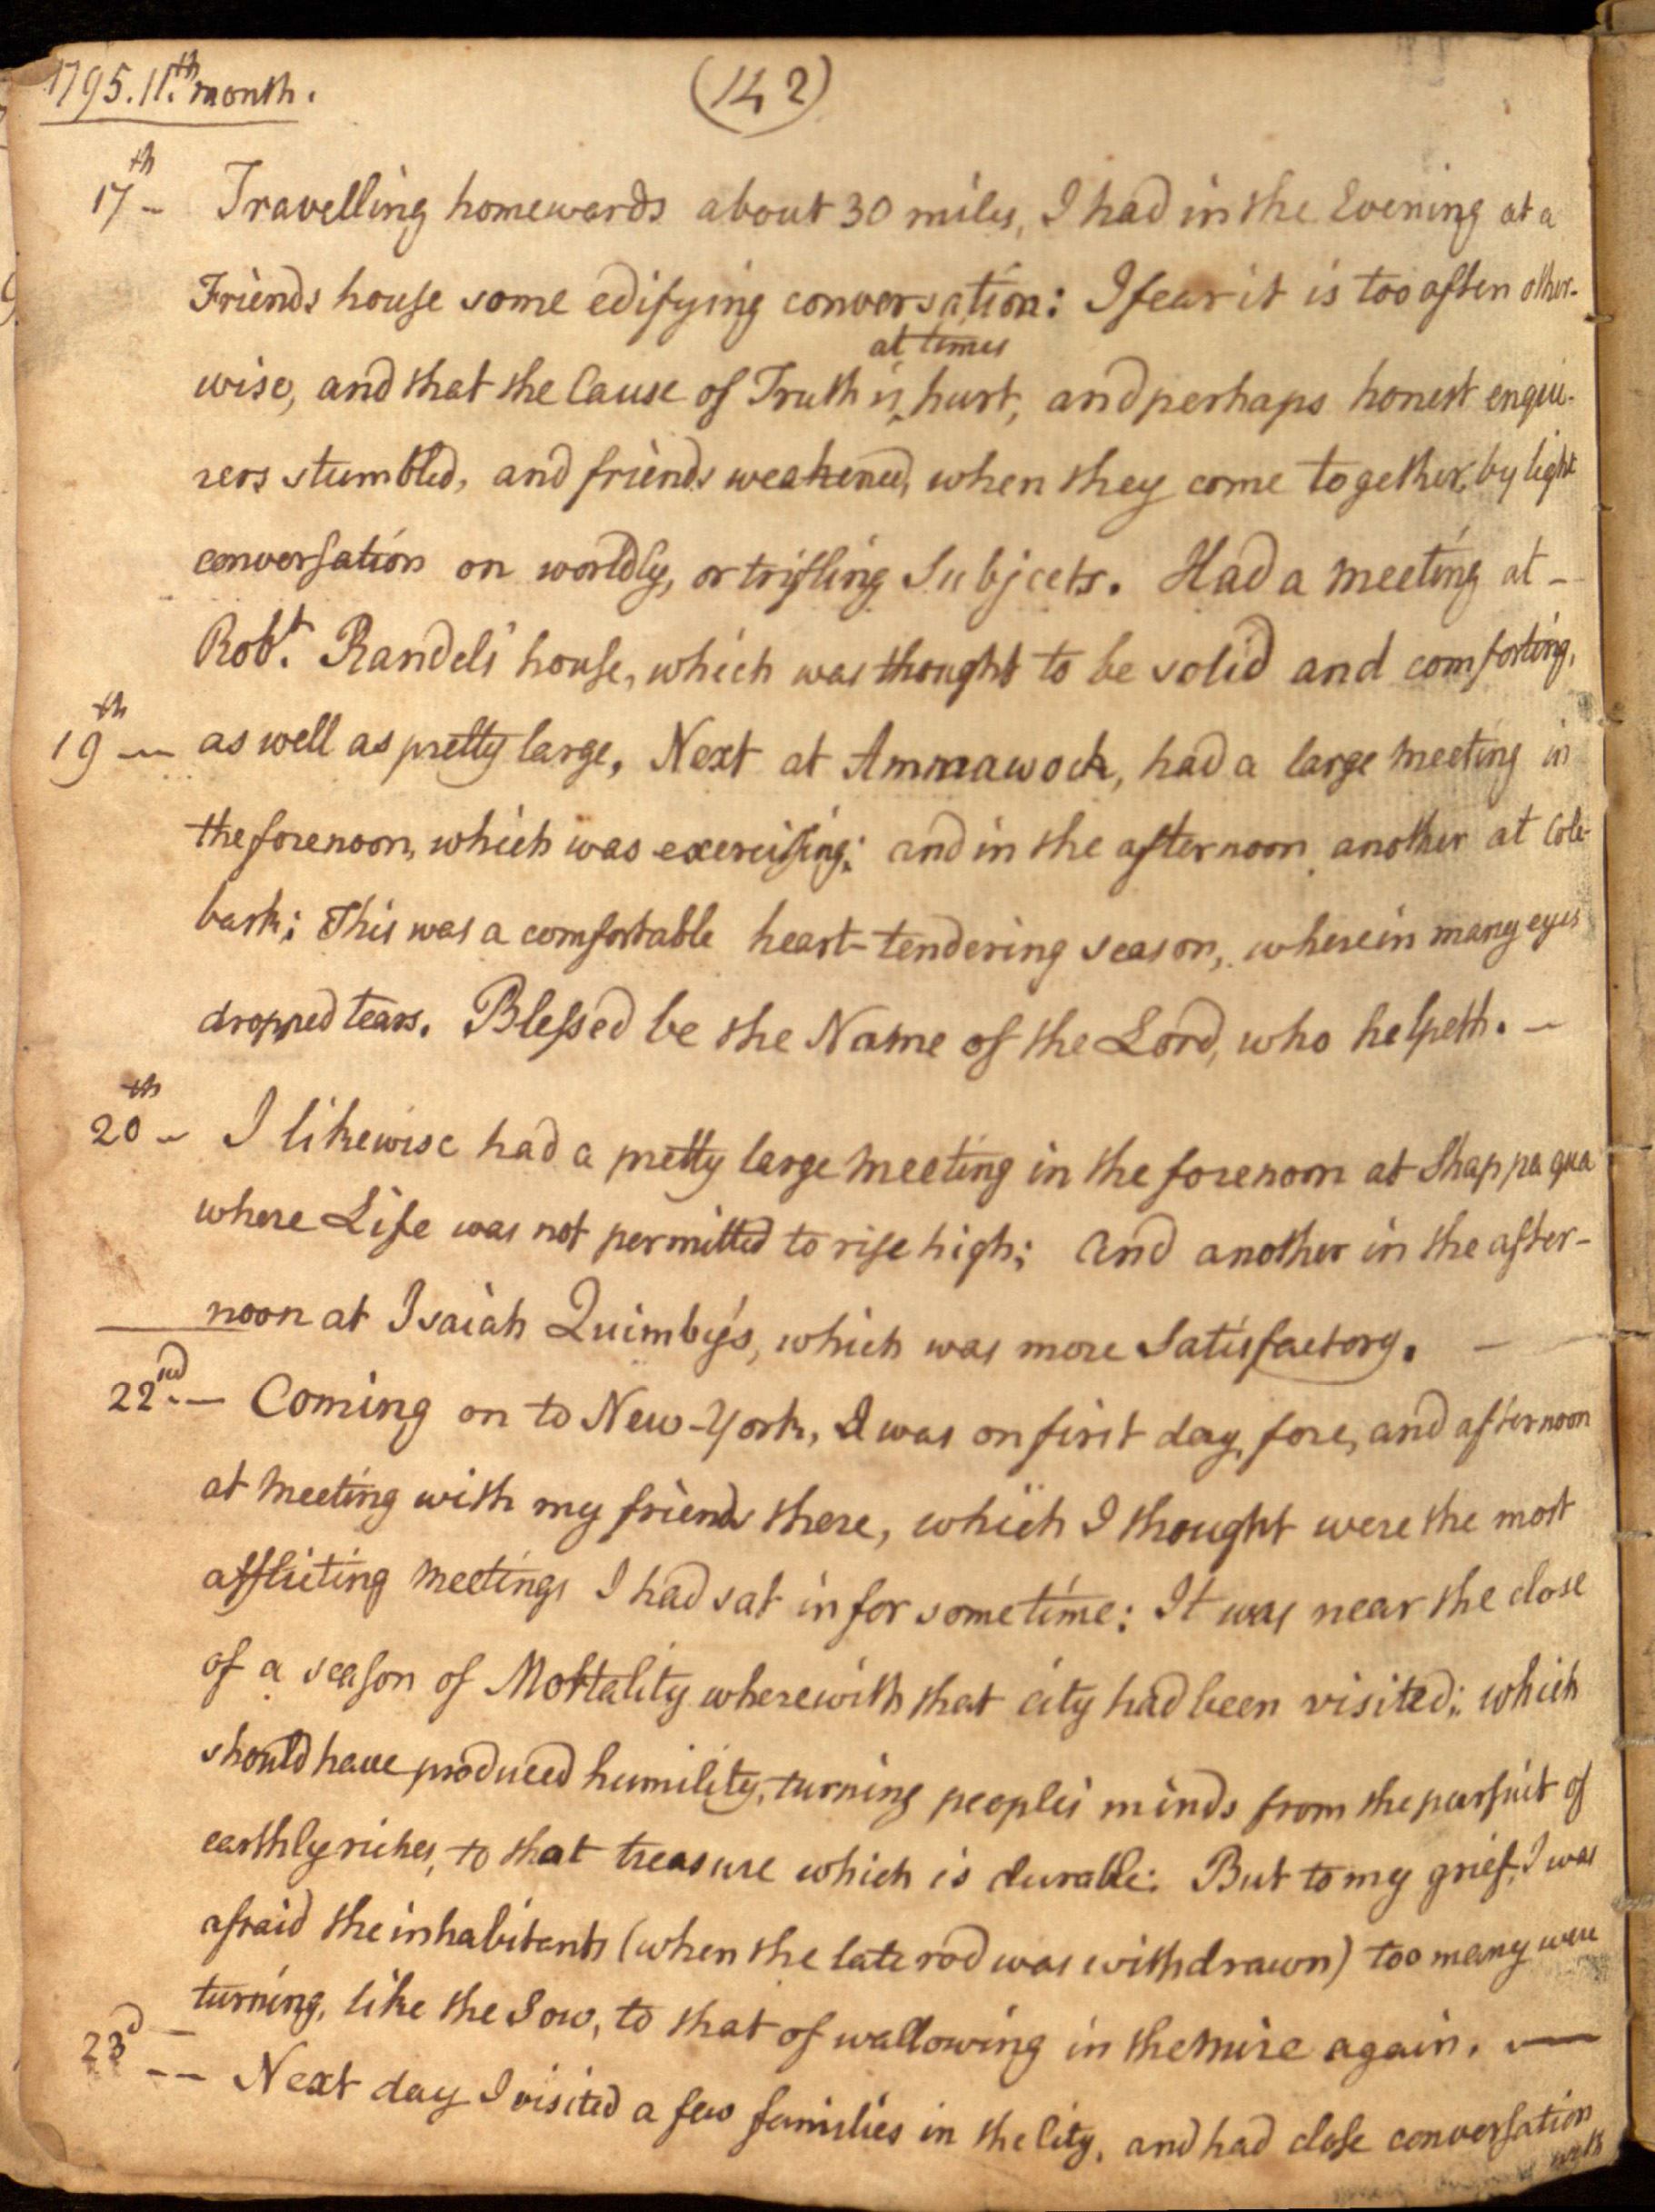 1795. 11.th month.
(142)
17th – Travelling homewards about 30 miles, I had in the Evening at a
Friends house some edifying conversation: I fear it is too often other-
at times
wise, and that the Cause of Truth is ‸ hurt, and perhaps honest enqui-
rers stumbled, and friends weakened, when they come together, by light
conversation on worldly, or trifling Subjects. Had a meeting at –
Robt. Randels' house, which was thought to be solid and comforting,
19th — as well as pretty large, Next at Ammawock, had a large meeting in
the forenoon, which was exercising; and in the afternoon another at Cole-
bark; This was a comfortable heart-tendering season, wherein many eyes
dropped tears. Blessed be the Name of the Lord, who helpeth. –
20th – I likewise had a pretty large meeting in the forenoon at Shappaqua
where Life was not permitted to rise high; and another in the after-
noon at Isaiah Quimby's, which was more Satisfactory. –
22nd. – Coming on to New-York, I was on first day, fore, and afternoon
at meeting with my friends there, which I thought were the most
afflicting meetings I had sat in for some time: It was near the close
of a season of Mortality wherewith that city had been visited; which
should have produced humility, turning peoples minds from the pursuit of
earthly riches, to that treasure which is durable: But to my grief, I was
afraid the inhabitants (when the late rod was withdrawn) too many were
turning, like the Sow, to that of wallowing in the mire again. —
23d – – Next day I visited a few families in the City, and had close conversation
with